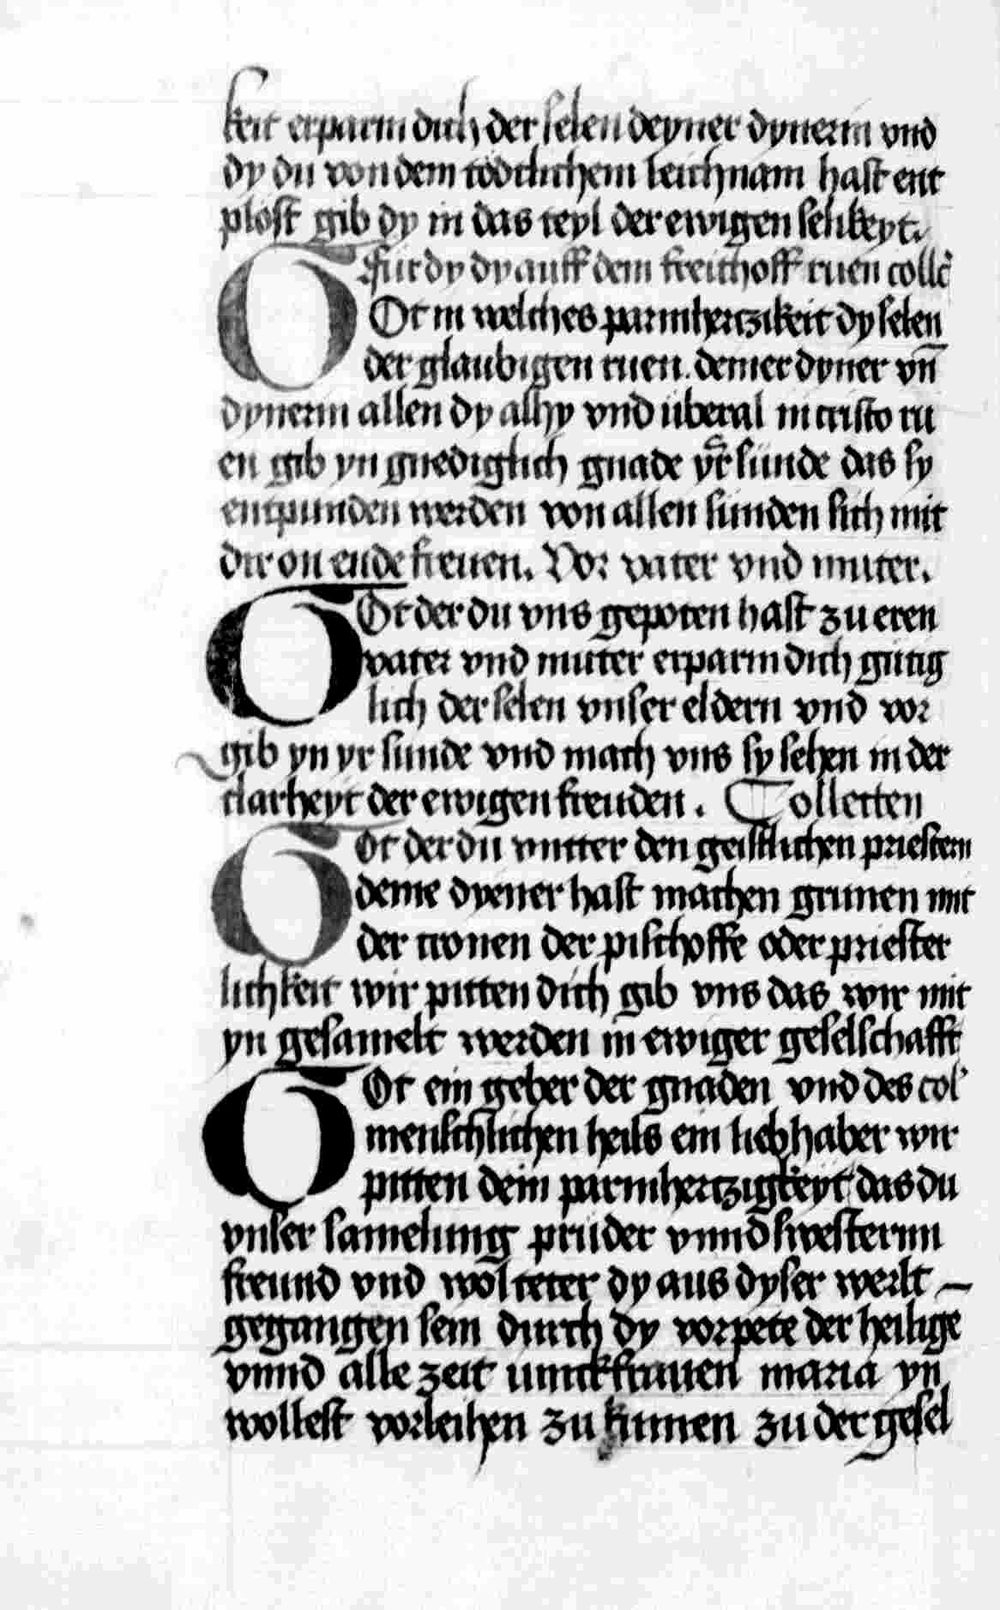 keit erparm dich der selen deyner dynerin vnd
dy du von dem tödtlichem leichnam hast ent
plöst gib dy in das teyl der ewigen selikeyt.
Für dy dy auff dem freithoff ruen collc̄
GOt in welches parmhertzikeit dy selen
der glaubigen ruen. deiner dyner vn̄
dynerin allen dy alhy vnd überal in cristo ru
en gib yn gnediglich gnade yr̄ sünde das sy
entpunden werden von allen sunden sich mit
dir on ende freuen. Vor vater vnd muter.
GOt der du vns gepoten hast zu eren
vater vnd muter erparm dich gütig
lich der selen vnser eldern vnd vor
gib yn yr sunde vnd mach vns sy sehen in der
clarheyt der ewigen freuden. Collecten
Got der du vntter den geistlichen priestern
deine dyener hast machen grunen mit
der cronen der pischoffe oder priester
lichkeit wir pitten dich gib vns das wir mit
yn gesamelt werden in ewiger geselschafft
GOt ein geber der gnaden vnd des col'
menschlichen heils ein liebhaber wir
pitten dein parmhertzigkeyt das du
vnser samelung prüder vnnd swesternn
freund vnd wolteter dy aus dyser werlt –
gegangen sein durch dy vorpete der heilige
vnnd alle zeit iunckfrauen maria yn
wollest vorleihen zu kumen zu der gesel